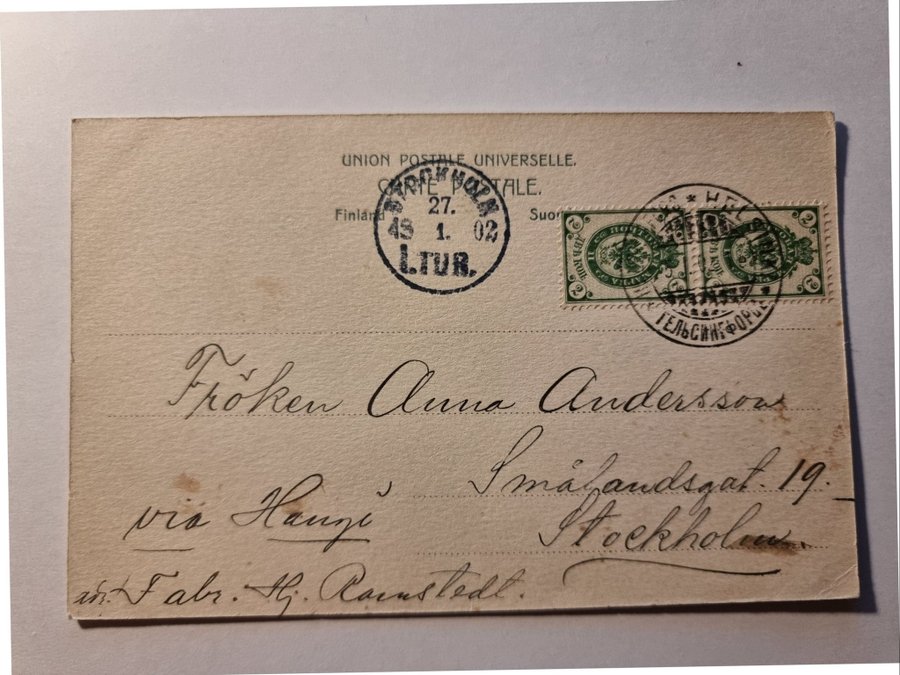 UNION POSTALE UNIVERSELLE.
CARTE POSTALE.
Finland
Suomi
STOCKHOLM
27.
1.
02
1.TUR.
2
2
ГЕЛЬСИНГФОРСЪ
Fröken Anna Andersson
Smålandsgat. 19.
via Hangö
Stockholm.
adr. Fabr. Hj. Ramstedt.